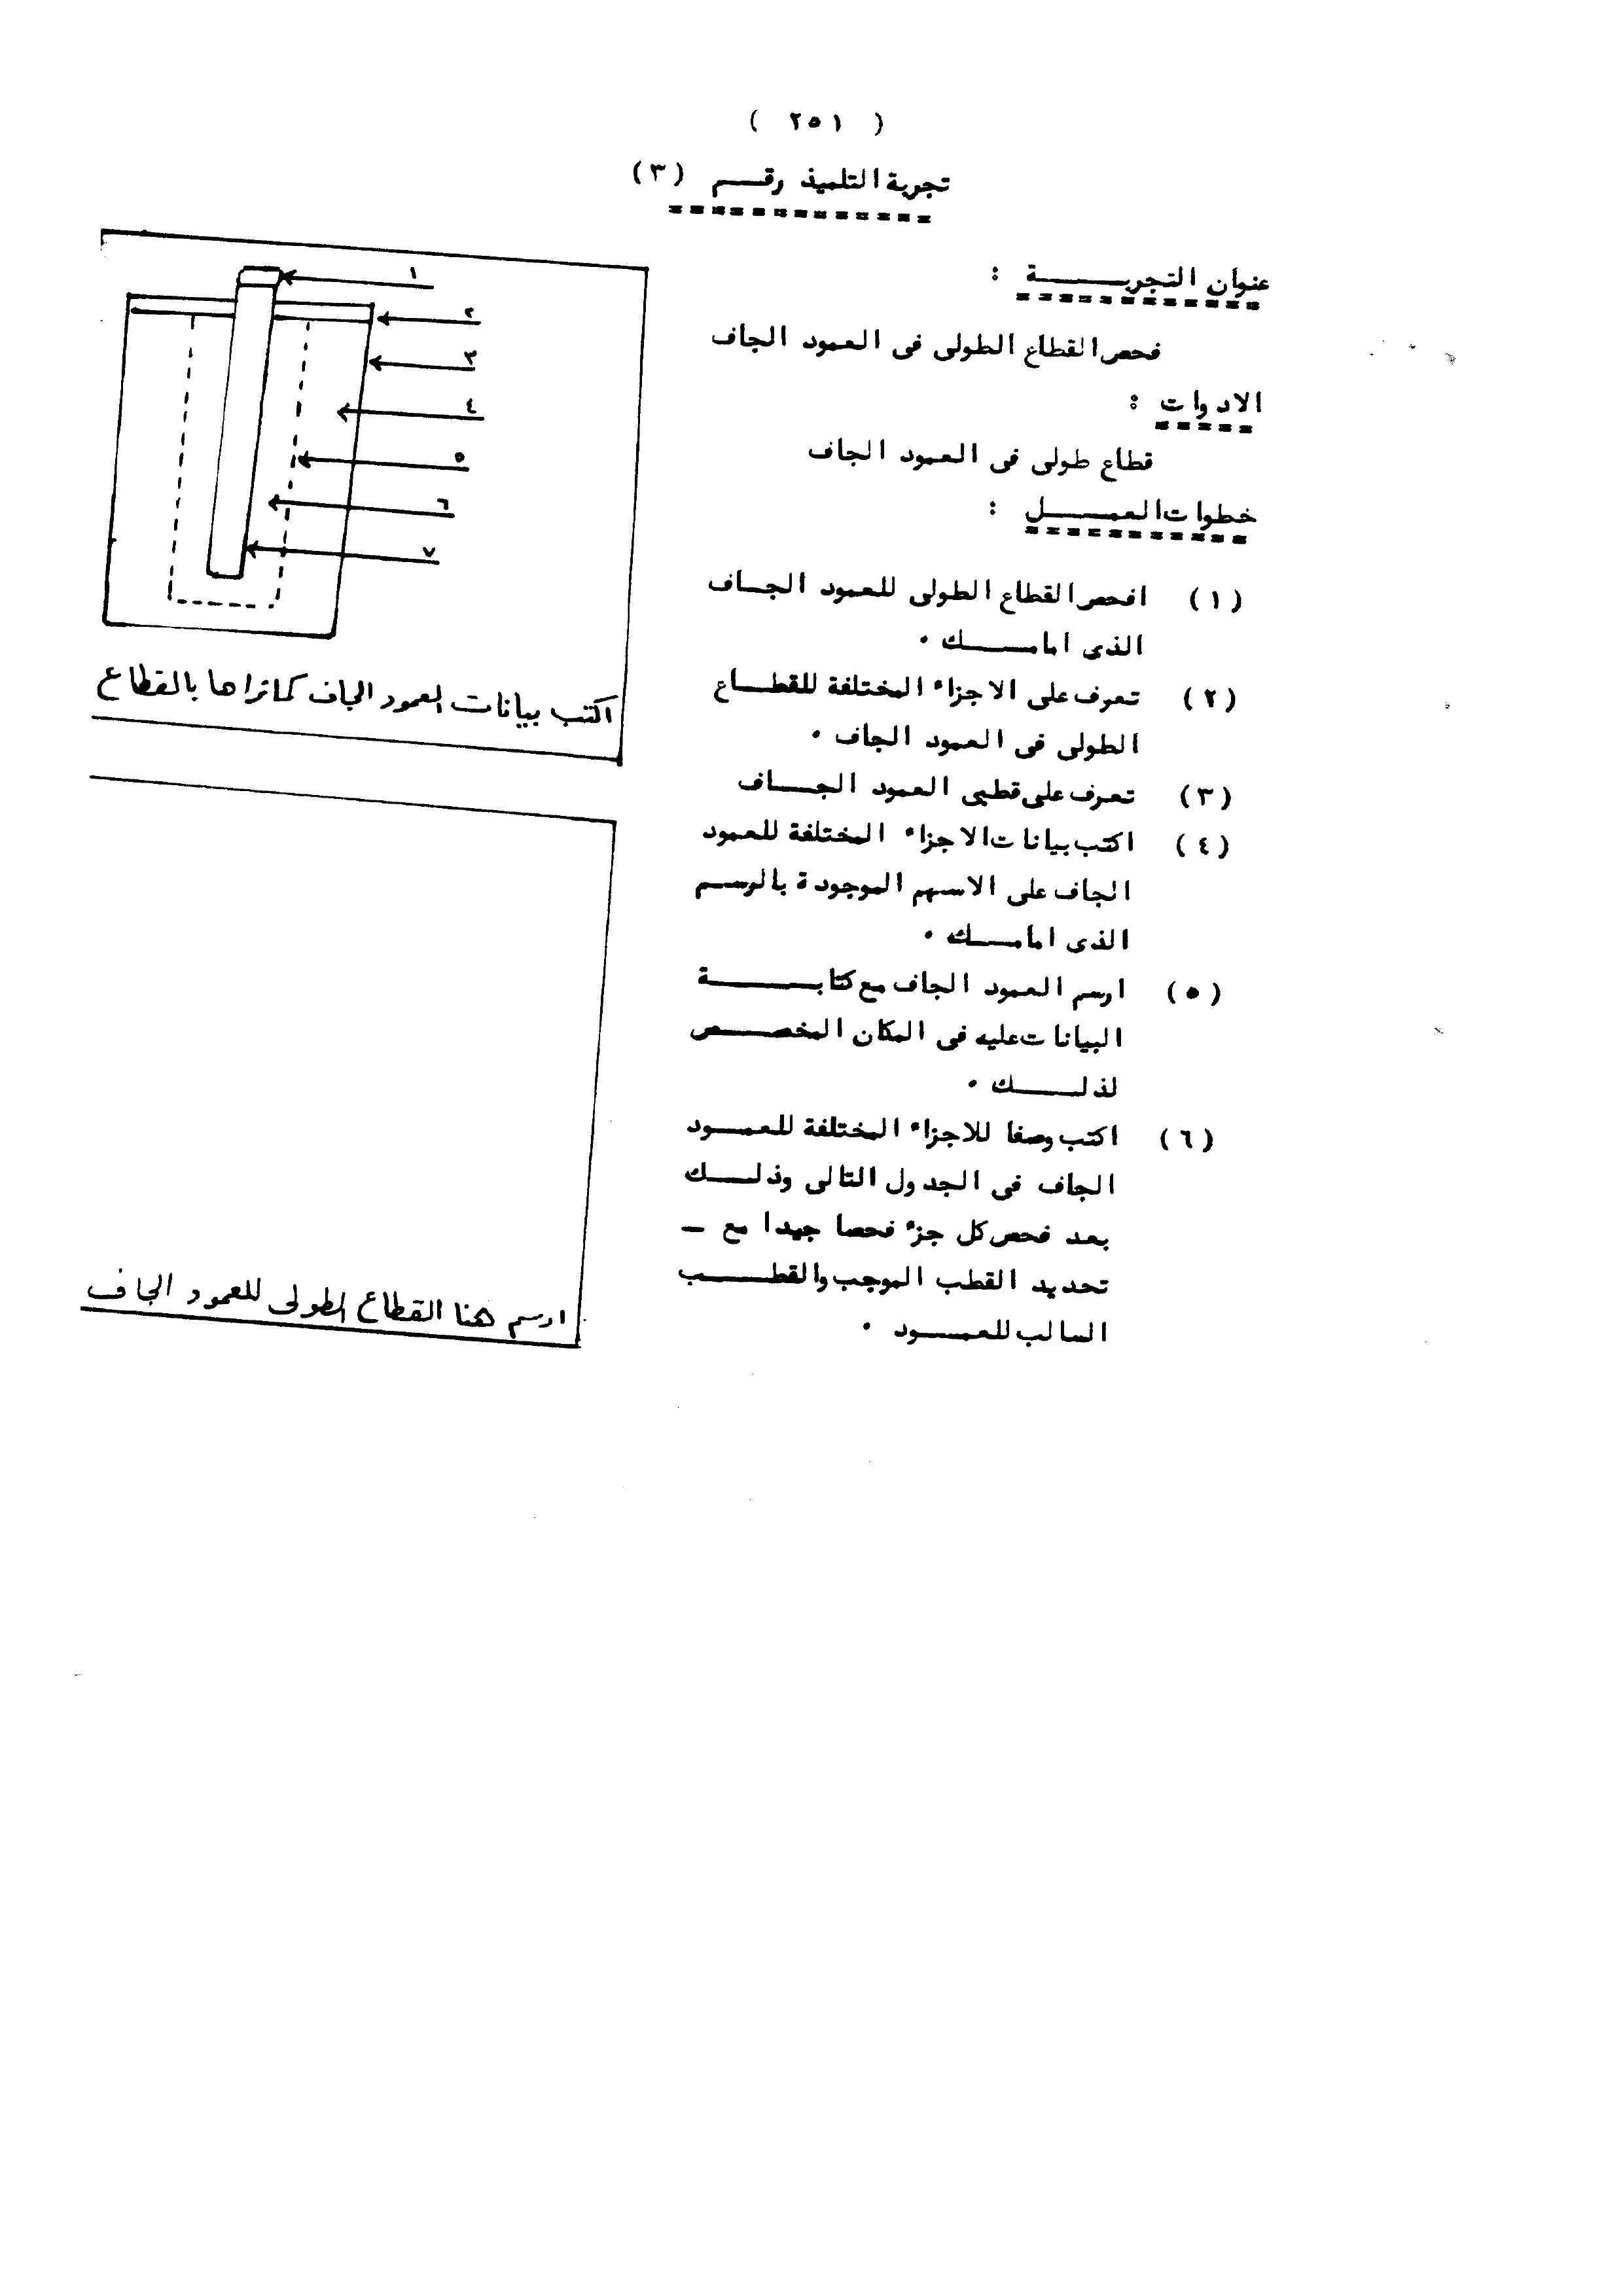 ( ٢٥١ )
تجربة التلميذ رقم (٣)
عنوان التجربة :
فحص القطاع الطولى فى العمود الجاف
الادوات :
قطاع طولى فى العمود الجاف
خطوات العمل :
(١) افحص القطاع الطولى للعمود الجاف
الذى امامك ٠
(٢) تعرف على الاجزاء المختلفة للقطاع
الطولى فى العمود الجاف ٠
(٣) تعرف على قطبى العمود الجاف
(٤) اكتب بيانات الاجزاء المختلفة للعمود
الجاف على الاسهم الموجودة بالرسم
الذى امامك ٠
(٥) ارسم العمود الجاف مع كتابة
البيانات عليه فى المكان المخصص
لذلك ٠
(٦) اكتب وصفا للاجزاء المختلفة للعمود
الجاف فى الجدول التالى وذلك
بعد فحص كل جزء فحصا جيدا مع ــ
تحديد القطب الموجب والقطب
السالب للعمود ٠
١
٢
٣
٤
٥
٦
٧
اكتب بيانات العمود الجاف كما تراها بالقطاع
ارسم هنا القطاع الطولى للعمود الجاف